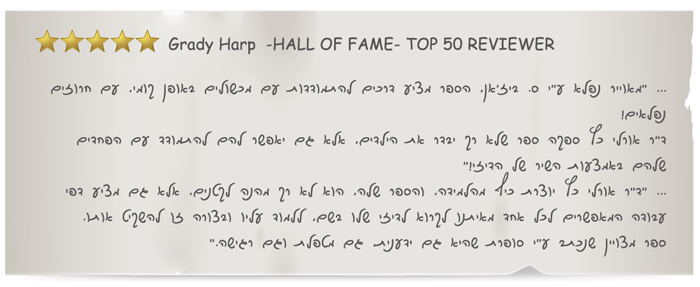 Grady Harp -HALL OF FAME- TOP 50 REVIEWER
... "מאוייר נפלא ע"י ס. ביזיאן. הספר מציע דרכים להתמודדות עם מכשולים באופן קומי, עם חרוזים
נפלאים!
ד"ר אורלי כץ ספקה ספר שלא רק יבדר את הילדים, אלא גם יאפשר להם להתמודד עם הפחדים
שלהם באמצעות השיר של הדיזי!"
... "ד"ר אורלי כץ יוצרת כיף מהלמידה, והספר שלה, הוא לא רק מהנה לקטנים, אלא גם מציע דפי
עבודה המאפשרים לכל אחד מאיתנו לקרוא לדיזי שלו בשם, ללמוד עליו ובצורה זו להשקיט אותו.
ספר מצויין שנכתב ע"י סופרת שהיא גם ידענית גם מטפלת וגם רגישה."